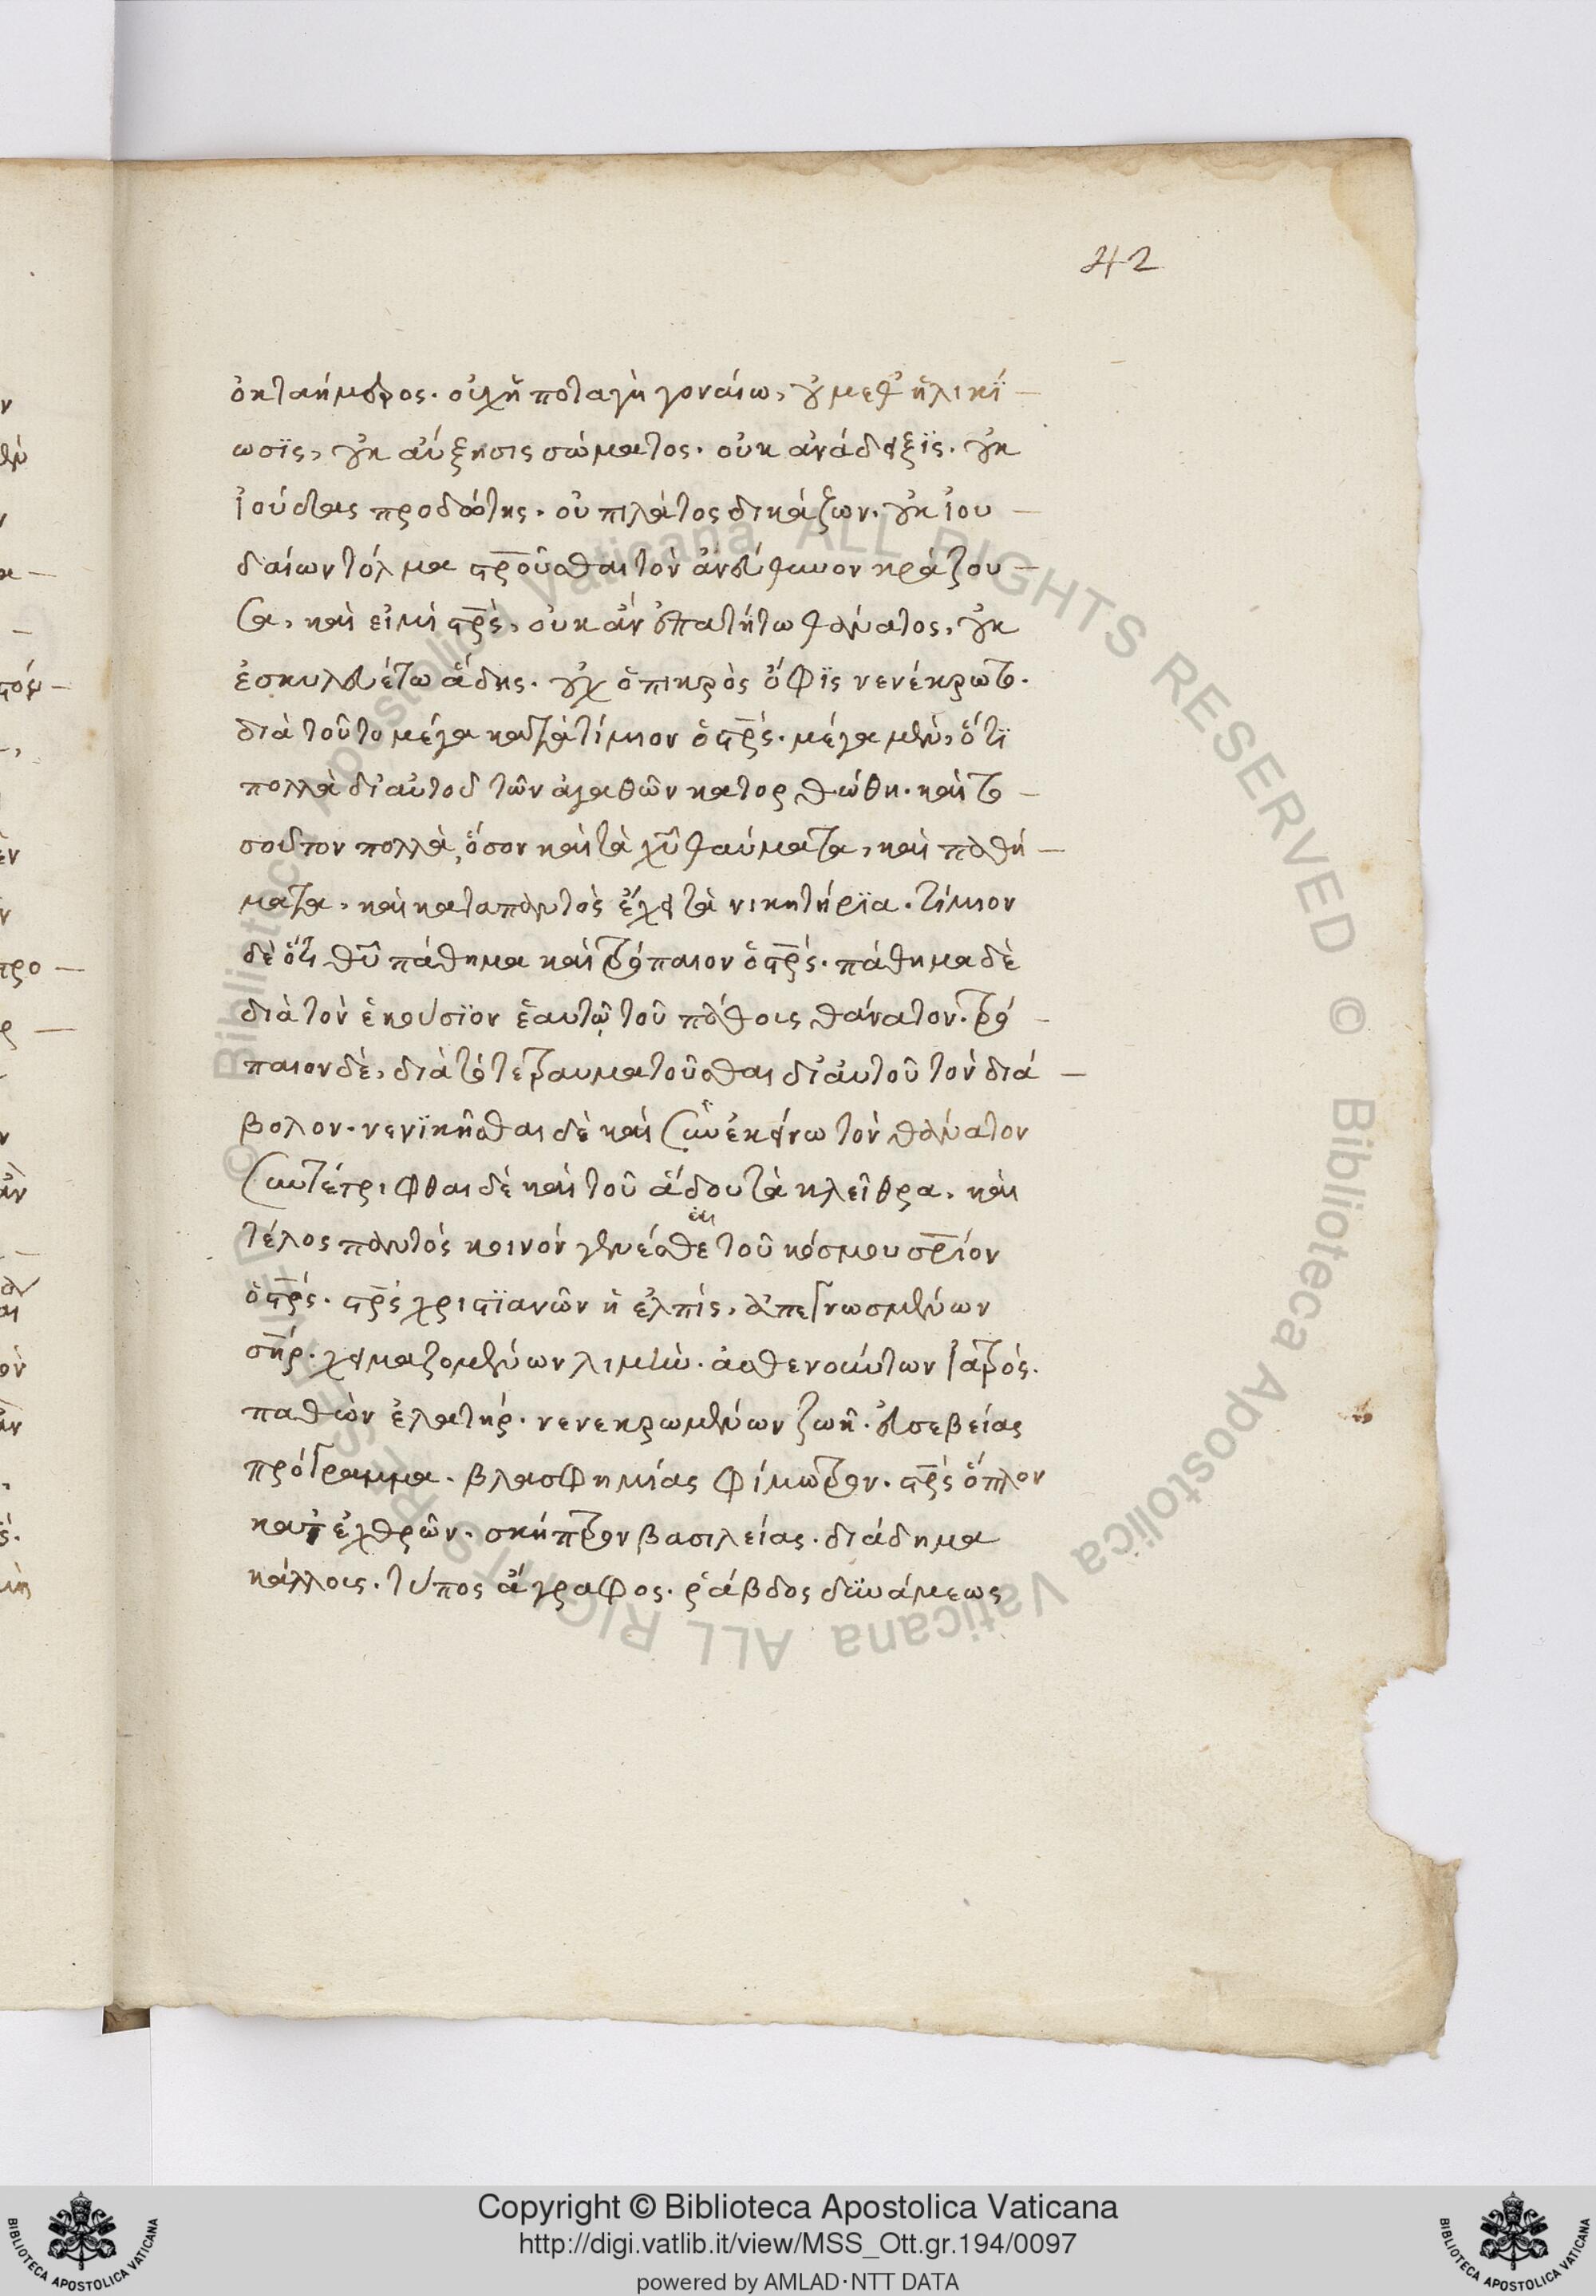 42
ὀκταήμερος. οὐχ ὑποταγὴ γονέων, οὐ μεθηλικί
ωσϊς, οὐκ αὔξησις σώματος. οὐκ ἀνάδειξϊς. οὐκ
ἰούδας προδότης. οὐ πιλάτος δικάζων. οὐκ ἰου
δαίων τόλμα στροῦσθαι τὸν ἀνεύθυνον κράζου
σα, καὶ εἰ μὴ στρς, οὐκ ἂν ἐπατήτω θάνατος, οὐκ
ἐσκυλεύετω ἅδης. οὐχ ὁ πικρὸς ὄφϊς νενέκρωτο.
διὰ τοῦτο μέγα καὶ τίμιον ὁ στρς. μέγα μὲν, ὅτϊ
πολλὰ δι' αὐτοῦ τῶν ἀγαθῶν κατορθώθη. καὶ το
σοῦτον πολλὰ, ὅσον καὶ τὰ χυ θαύματα, καὶ παθή
ματα. καὶ καταπαντὸς ἔχει τὰ νικητήρϊα. τίμιον
δὲ ὅτι θυ πάθημα καὶ τρόπαιον ὁ στρς. πάθημα δὲ
διὰ τὸν ἑκούσϊον ἑαυτῷ τοῦ πάθους θάνατον. τρό
παιον δὲ, διὰ τὸ τετραυματοῦσθαι δι' αὐτοῦ τὸν διά
βολον. νενϊκῆσθαι δὲ καὶ σὺν ἐκείνω τὸν θάνατον
συντέτριφθαι δὲ καὶ τοῦ ἅδου τὰ κλεῖθρα. καὶ
τέλος παντὸς κοινὸν γενέσθαι τοῦ κόσμου σρίον
ὁ στρς. στρς χριστϊανῶν ἡ ἐλπίς. ἀπεγνωσμένων
σηρ. χειμαζομένων λιμὴν. ἀσθενούντων ἰατρός.
παθῶν ἐλατήρ. νενεκρωμένων ζωή. εὐσεβείας
πρόγραμμα. βλασφημίας φίμωτρον. στρς ὅπλον
κατ' ἐχθρῶν. σκήπτρον βασιλείας. διάδημα
κάλλους. τύπος ἄγραφος. ῥάβδος δϋνάμεως
© Biblioteca Apostolica Vaticana ALL RIGHTS RESERVED © Biblioteca Apostolica Vaticana ALL RIGHTS RESERVED
Copyright © Biblioteca Apostolica Vaticana
http://digi.vatlib.it/view/MSS_Ott.gr.194/0097
powered by AMLAD·NTT DATA
BIBLIOTECA APOSTOLICA VATICANA
BIBLIOTECA APOSTOLICA VATICANA